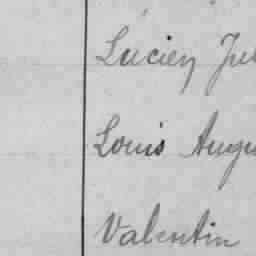 Lucien Jul
Louis Augu
Valentin